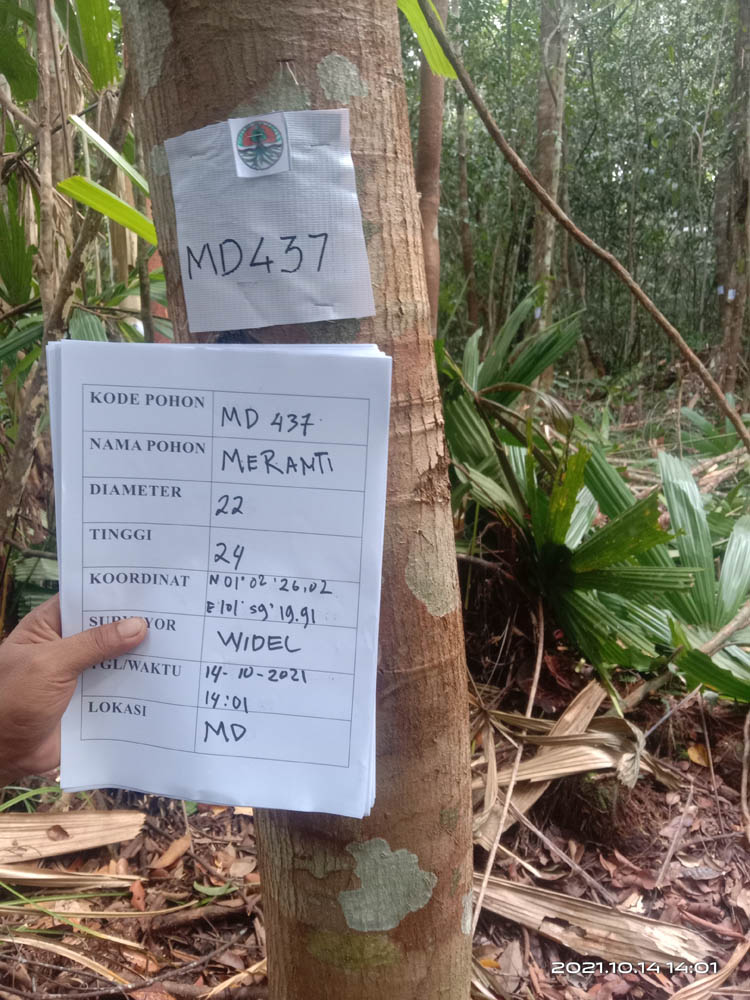 MD437
KODE POHON MD 437
NAMA POHON MERANTI
DIAMETER 22
TINGGI 24
KOORDINAT N 01° 02' 26.02
E 101° 59' 19.91
SURVEYOR WIDEL
TGL/WAKTU 14-10-2021
14:01
LOKASI MD
2021.10.14 14:01